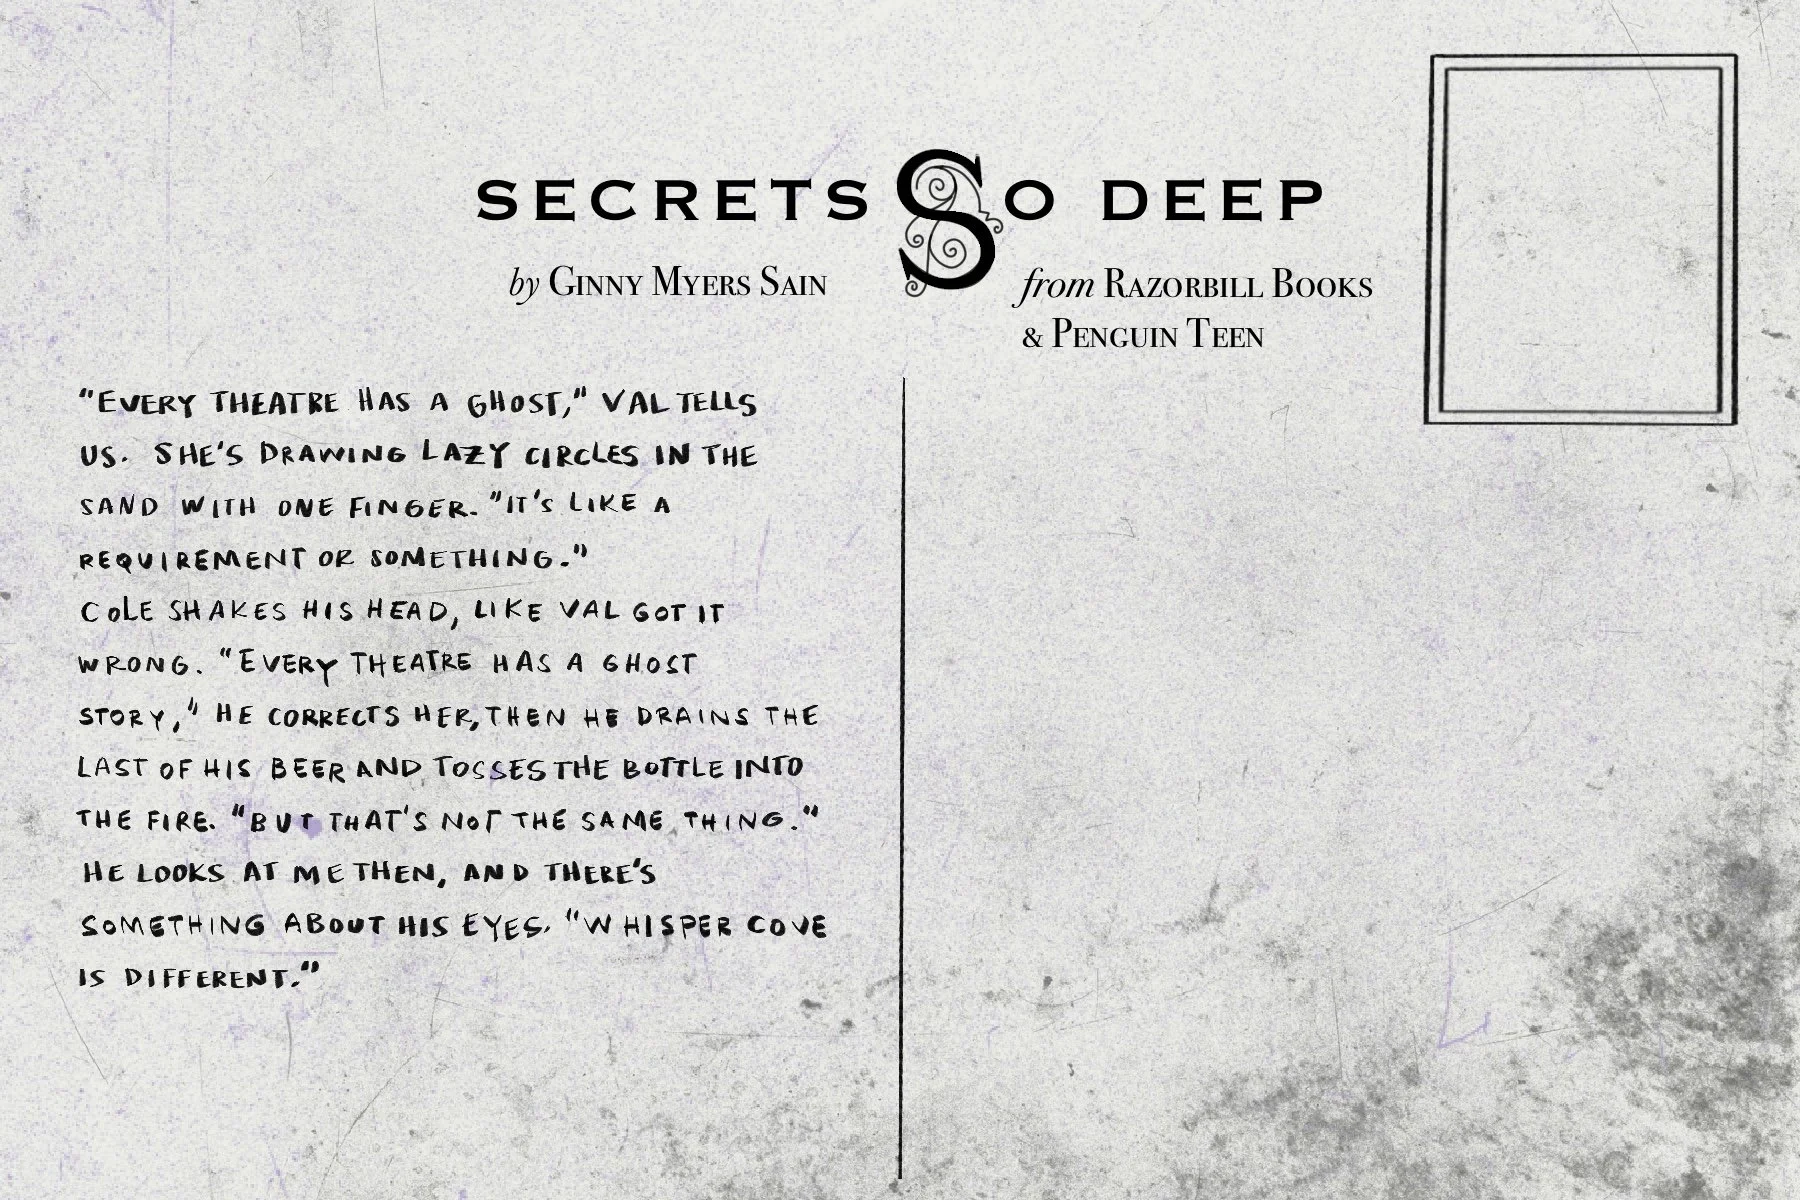 SECRETS SO DEEP
by Ginny Myers Sain
from Razorbill Books
& Penguin Teen
"EVERY THEATRE HAS A GHOST," VAL TELLS
US. SHE'S DRAWING LAZY CIRCLES IN THE
SAND WITH ONE FINGER. "IT'S LIKE A
REQUIREMENT OR SOMETHING."
COLE SHAKES HIS HEAD, LIKE VAL GOT IT
WRONG. "EVERY THEATRE HAS A GHOST
STORY," HE CORRECTS HER, THEN HE DRAINS THE
LAST OF HIS BEER AND TOSSES THE BOTTLE INTO
THE FIRE. "BUT THAT'S NOT THE SAME THING."
HE LOOKS AT ME THEN, AND THERE'S
SOMETHING ABOUT HIS EYES. "WHISPER COVE
IS DIFFERENT."